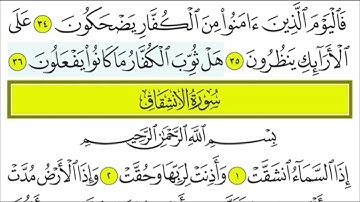 فَالْيَوْمَ الَّذِينَ ءَامَنُوا۟ مِنَ الْكُفَّارِ يَضْحَكُونَ ٣٤ عَلَى
الْأَرَآئِكِ يَنظُرُونَ ٣٥ هَلْ ثُوِّبَ الْكُفَّارُ مَا كَانُوا۟ يَفْعَلُونَ ٣٦
سُورَةُ الْإِنشِقَاقِ
بِسْمِ اللَّهِ الرَّحْمَٰنِ الرَّحِيمِ
إِذَا السَّمَآءُ انشَقَّتْ ١ وَأَذِنَتْ لِرَبِّهَا وَحُقَّتْ ٢ وَإِذَا الْأَرْضُ مُدَّتْ